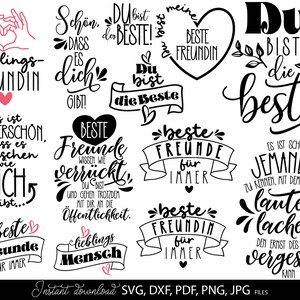 lings-
UNDIN
Schön,
DASS
ES
dich
GIBT!
DU bist
der
BESTE!
Du bist meine
BESTE
FREUNDIN
Du
BIST
die
beste
Du
bist
die Beste
ist
ERSCHÖN,
ass es
schen
wie
ICH
ibt...
BESTE
Freunde
WISSEN WIE
verrückt
DU BIST
UND GEHEN TROTZDEM
MIT DIR AN DIE
Öffentlichkeit.
beste
FREUNDE
für
IMMER
ES IST SCHÖN
JEMANDEN
ZU KENNEN, MIT DEM
laute
lachen
DEN ERNST DES
vergess
KANN
beste
eunde
FÜR IMMER
Lieblings
Mensch
beste
FREUNDIN
für
IMMER
Instant download SVG, DXF, PDF, PNG, JPG FILES